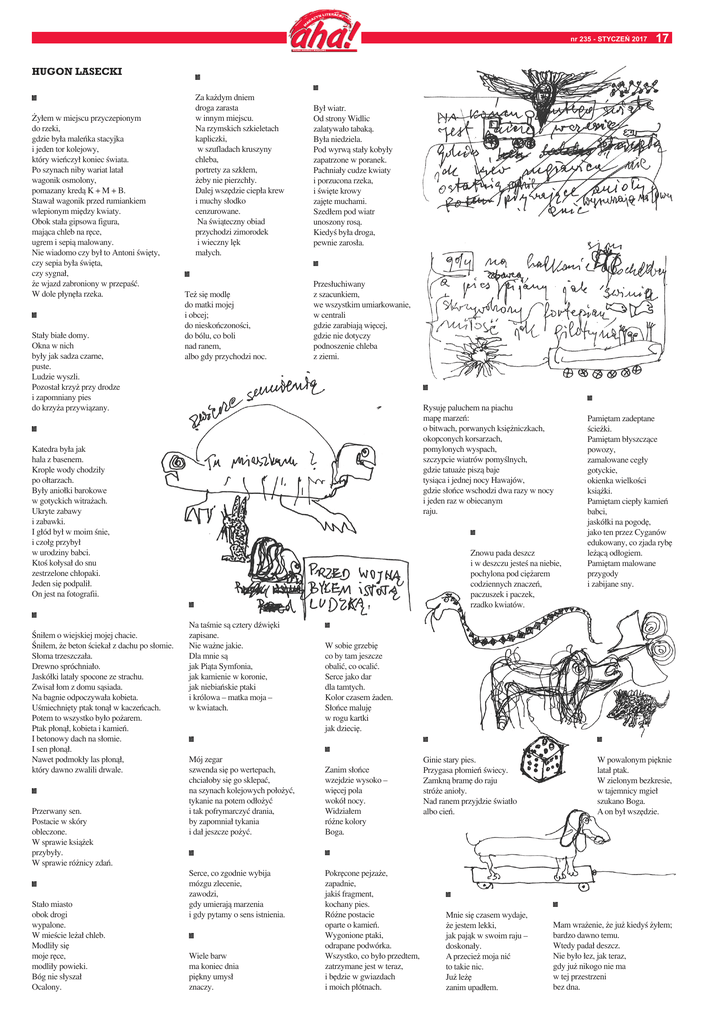 MAGAZYN LITERACKI
aha!
nr 235 - STYCZEŃ 2017 17
HUGON LASECKI
Żyłem w miejscu przyczepionym
do rzeki,
gdzie była maleńka stacyjka
i jeden tor kolejowy,
który wieńczył koniec świata.
Po szynach niby wariat latał
wagonik osmolony,
pomazany kredą K + M + B.
Stawał wagonik przed rumiankiem
wlepionym między kwiaty.
Obok stała gipsowa figura,
mająca chleb na ręce,
ugrem i sepią malowany.
Nie wiadomo czy był to Antoni święty,
czy sepia była święta,
czy sygnał,
że wjazd zabroniony w przepaść.
W dole płynęła rzeka.
Stały białe domy.
Okna w nich
były jak sadza czarne,
puste.
Ludzie wyszli.
Pozostał krzyż przy drodze
i zapomniany pies
do krzyża przywiązany.
Katedra była jak
hala z basenem.
Krople wody chodziły
po ołtarzach.
Były aniołki barokowe
w gotyckich witrażach.
Ukryte zabawy
i zabawki.
I głód był w moim śnie,
i czołg przybył
w urodziny babci.
Ktoś kołysał do snu
zestrzelone chłopaki.
Jeden się podpalił.
On jest na fotografii.
Śniłem o wiejskiej mojej chacie.
Śniłem, że beton ściekał z dachu po słomie.
Słoma trzeszczała.
Drewno spróchniało.
Jaskółki latały spocone ze strachu.
Zwisał łom z domu sąsiada.
Na bagnie odpoczywała kobieta.
Uśmiechnięty ptak tonął w kaczeńcach.
Potem to wszystko było pożarem.
Ptak płonął, kobieta i kamień.
I betonowy dach na słomie.
I sen płonął.
Nawet podmokły las płonął,
który dawno zwalili drwale.
Przerwany sen.
Postacie w skóry
obleczone.
W sprawie książek
przybyły.
W sprawie różnicy zdań.
Stało miasto
obok drogi
wypalone.
W mieście leżał chleb.
Modliły się
moje ręce,
modliły powieki.
Bóg nie słyszał
Ocalony.
Za każdym dniem
droga zarasta
w innym miejscu.
Na rzymskich szkieletach
kapliczki,
w szufladach kruszyny
chleba,
portrety za szkłem,
żeby nie pierzchły.
Dalej wszędzie ciepła krew
i muchy słodko
cenzurowane.
Na świąteczny obiad
przychodzi zimorodek
i wieczny lęk
małych.
Też się modlę
do matki mojej
i obcej;
do nieskończoności,
do bólu, co boli
nad ranem,
albo gdy przychodzi noc.
Był wiatr.
Od strony Widlic
zalatywało tabaką.
Była niedziela.
Pod wyrwą stały kobyły
zapatrzone w poranek.
Pachniały cudze kwiaty
i porzucona rzeka,
i święte krowy
zajęte muchami.
Szedłem pod wiatr
unoszony rosą.
Kiedyś była droga,
pewnie zarosła.
Przesłuchiwany
z szacunkiem,
we wszystkim umiarkowanie,
w centrali
gdzie zarabiają więcej,
gdzie nie dotyczy
podnoszenie chleba
z ziemi.
Tu mieszkam ?
PRZED WOJNĄ
BYŁEM ISTOTĄ
LUDZKĄ.
Na taśmie są cztery dźwięki
zapisane.
Nie ważne jakie.
Dla mnie są
jak Piąta Symfonia,
jak kamienie w koronie,
jak niebiańskie ptaki
i królowa – matka moja –
w kwiatach.
Mój zegar
szwenda się po wertepach,
chciałoby się go sklepać,
na szynach kolejowych położyć,
tykanie na potem odłożyć
i tak pofrymarczyć drania,
by zapomniał tykania
i dał jeszcze pożyć.
Serce, co zgodnie wybija
mózgu zlecenie,
zawodzi,
gdy umierają marzenia
i gdy pytamy o sens istnienia.
Wiele barw
ma koniec dnia
piękny umysł
znaczy.
W sobie grzebię
co by tam jeszcze
obalić, co ocalić.
Serce jako dar
dla tamtych.
Kolor czasem żaden.
Słońce maluję
w rogu kartki
jak dziecię.
Zanim słońce
wzejdzie wysoko –
więcej pola
wokół nocy.
Widziałem
różne kolory
Boga.
Pokręcone pejzaże,
zapadnie,
jakiś fragment,
kochany pies.
Różne postacie
oparte o kamień.
Wygonione ptaki,
odrapane podwórka.
Wszystko, co było przedtem,
zatrzymane jest w teraz,
i będzie w gwiazdach
i moich płótnach.
goły na balkonie
a pies pijany jak świnia
fortepian
miłość jak gilotyna
Rysuję paluchem na piachu
mapę marzeń:
o bitwach, porwanych księżniczkach,
okopconych korsarzach,
pomylonych wyspach,
szczypcie wiatrów pomyślnych,
gdzie tatuaże piszą baje
tysiąca i jednej nocy Hawajów,
gdzie słońce wschodzi dwa razy w nocy
i jeden raz w obiecanym
raju.
Znowu pada deszcz
i w deszczu jesteś na niebie,
pochylona pod ciężarem
codziennych znaczeń,
paczuszek i paczek,
rzadko kwiatów.
Pamiętam zadeptane
ścieżki.
Pamiętam błyszczące
powozy,
zamalowane cegły
gotyckie,
okienka wielkości
książki.
Pamiętam ciepły kamień
babci,
jaskółki na pogodę,
jako ten przez Cyganów
edukowany, co zjada rybę
leżącą odłogiem.
Pamiętam malowane
przygody
i zabijane sny.
Ginie stary pies.
Przygasa płomień świecy.
Zamkną bramę do raju
stróże anioły.
Nad ranem przyjdzie światło
albo cień.
W powalonym pięknie
latał ptak.
W zielonym bezkresie,
w tajemnicy mgieł
szukano Boga.
A on był wszędzie.
Mnie się czasem wydaje,
że jestem lekki,
jak pająk w swoim raju –
doskonały.
A przecież moja nić
to takie nic.
Już leżę
zanim upadłem.
Mam wrażenie, że już kiedyś żyłem;
bardzo dawno temu.
Wtedy padał deszcz.
Nie było łez, jak teraz,
gdy już nikogo nie ma
w tej przestrzeni
bez dna.